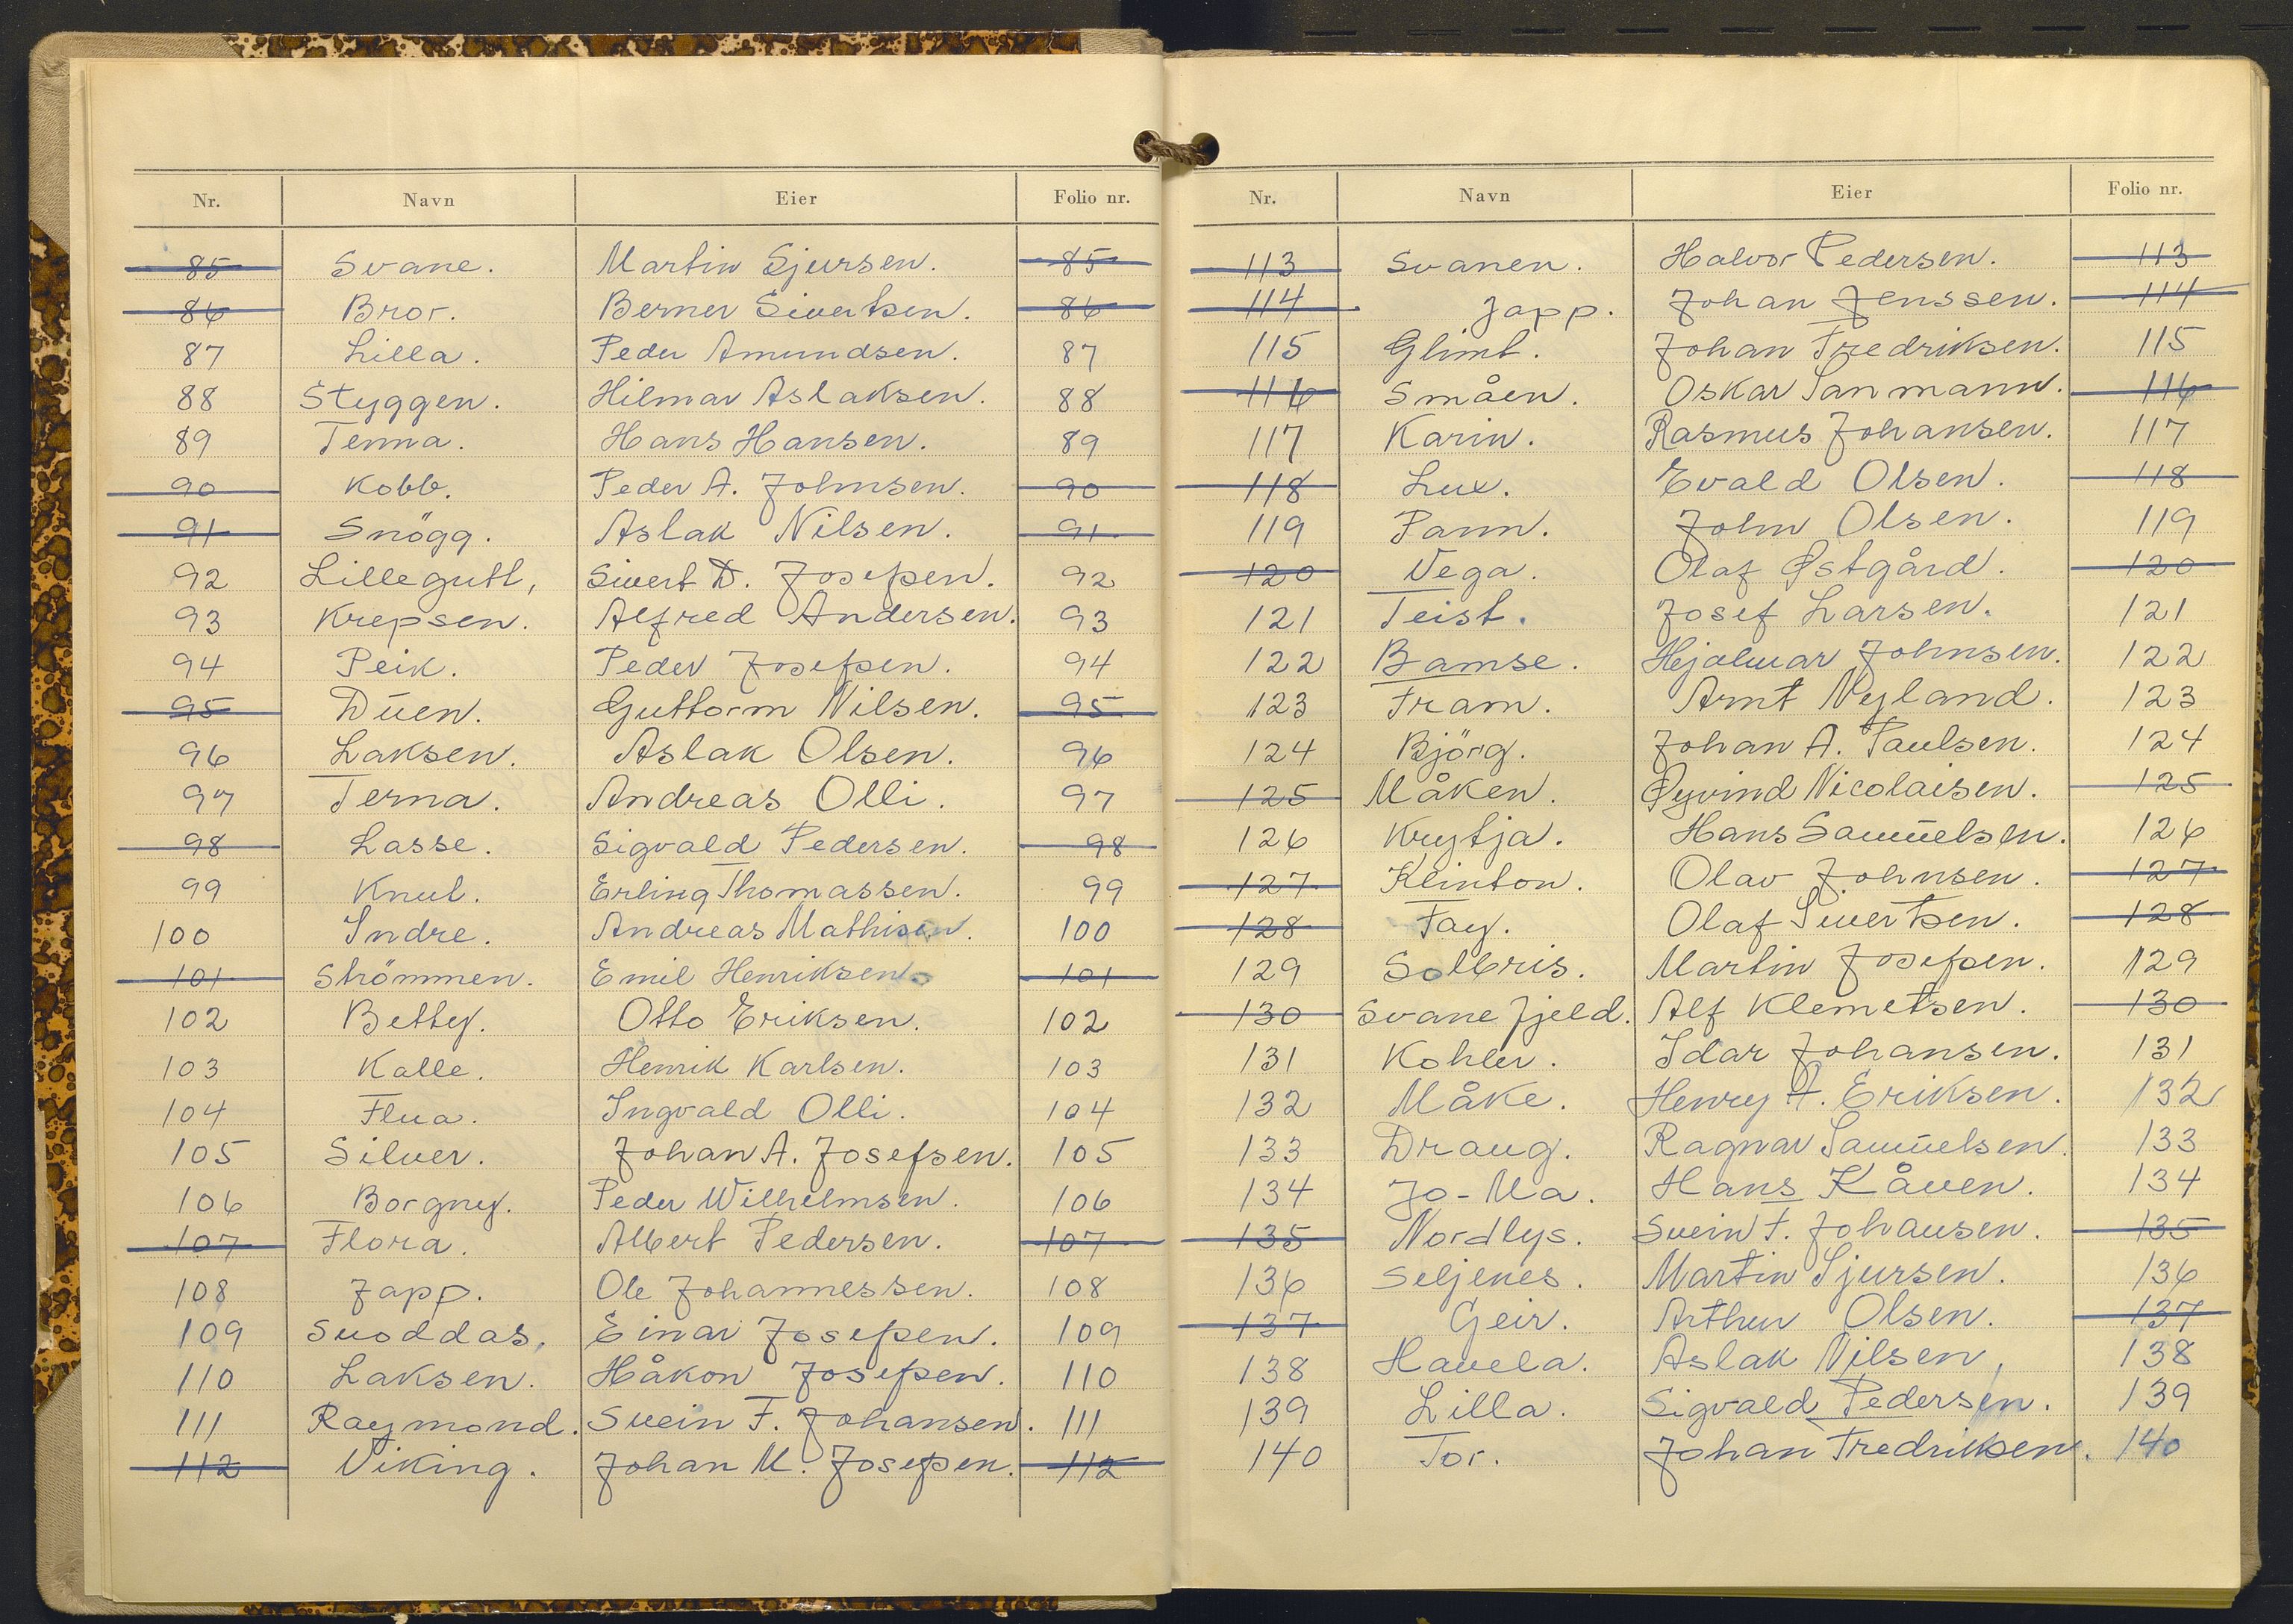 Nr. Navn Eier Folio nr.
85 Svane. Martin Sjursen. 85
86 Bror. Berner Sivertsen. 86
87 Lilla. Peder Amundsen. 87
88 Styggen. Hilmar Aslaksen. 88
89 Tenna. Hans Hansen. 89
90 Kobb. Peder A. Johnsen. 90
91 Snögg. Aslak Nilsen. 91
92 Lillegutt, Sivert D. Josefsen. 92
93 Krepsen. Alfred Andersen. 93
94 Peik. Peder Josefsen. 94
95 Duen. Guttorm Nilsen. 95
96 Laksen. Aslak Olsen. 96
97 Terna. Andreas Olli. 97
98 Lasse. Sigvald Pedersen. 98
99 Knut. Erling Thomassen. 99
100 Indre. Andreas Mathisen. 100
101 Strömmen. Emil Henriksen. 101
102 Betty. Otto Eriksen. 102
103 Kalle. Henrik Karlsen. 103
104 Flua. Ingvald Olli. 104
105 Silver. Johan A. Josefsen. 105
106 Borgny. Peder Wilhelmsen. 106
107 Flora. Albert Pedersen. 107
108 Japp. Ole Johannessen. 108
109 Suoddas. Einar Josefsen. 109
110 Laksen. Håkon Josefsen. 110
111 Raymond. Svein F. Johansen. 111
112 Viking. Johan M. Josefsen. 112
Nr. Navn Eier Folio nr.
113 Svanen. Halvor Pedersen. 113
114 Japp. Johan Jenssen. 114
115 Glimt. Johan Fredriksen. 115
116 Småen. Oskar Sanmann. 116
117 Karin. Rasmus Johansen. 117
118 Lux. Evald Olsen. 118
119 Pann. John Olsen. 119
120 Vega. Olaf Østgård. 120
121 Teist. Josef Larsen. 121
122 Bamse. Hjalmar Johnsen. 122
123 Fram. Arnt Nyland. 123
124 Björg. Johan A. Paulsen. 124
125 Måken. Øyvind Nicolaisen. 125
126 Krytja. Hans Samuelsen. 126
127 Klinton. Olav Johnsen. 127
128 Fay. Olaf Sivertsen. 128
129 Solbris. Martin Josefsen. 129
130 Svanefjeld. Alf Klemetsen. 130
131 Kohler. Idar Johansen. 131
132 Måke. Henry A. Eriksen. 132
133 Draug. Ragnar Samuelsen. 133
134 Jo-Ma. Hans Kåven. 134
135 Nordlys. Svein F. Johansen. 135
136 Seljenes. Martin Sjursen. 136
137 Geir. Arthur Olsen. 137
138 Havela. Aslak Nilsen, 138
139 Lilla. Sigvald Pedersen. 139
140 Tor. Johan Fredriksen. 140